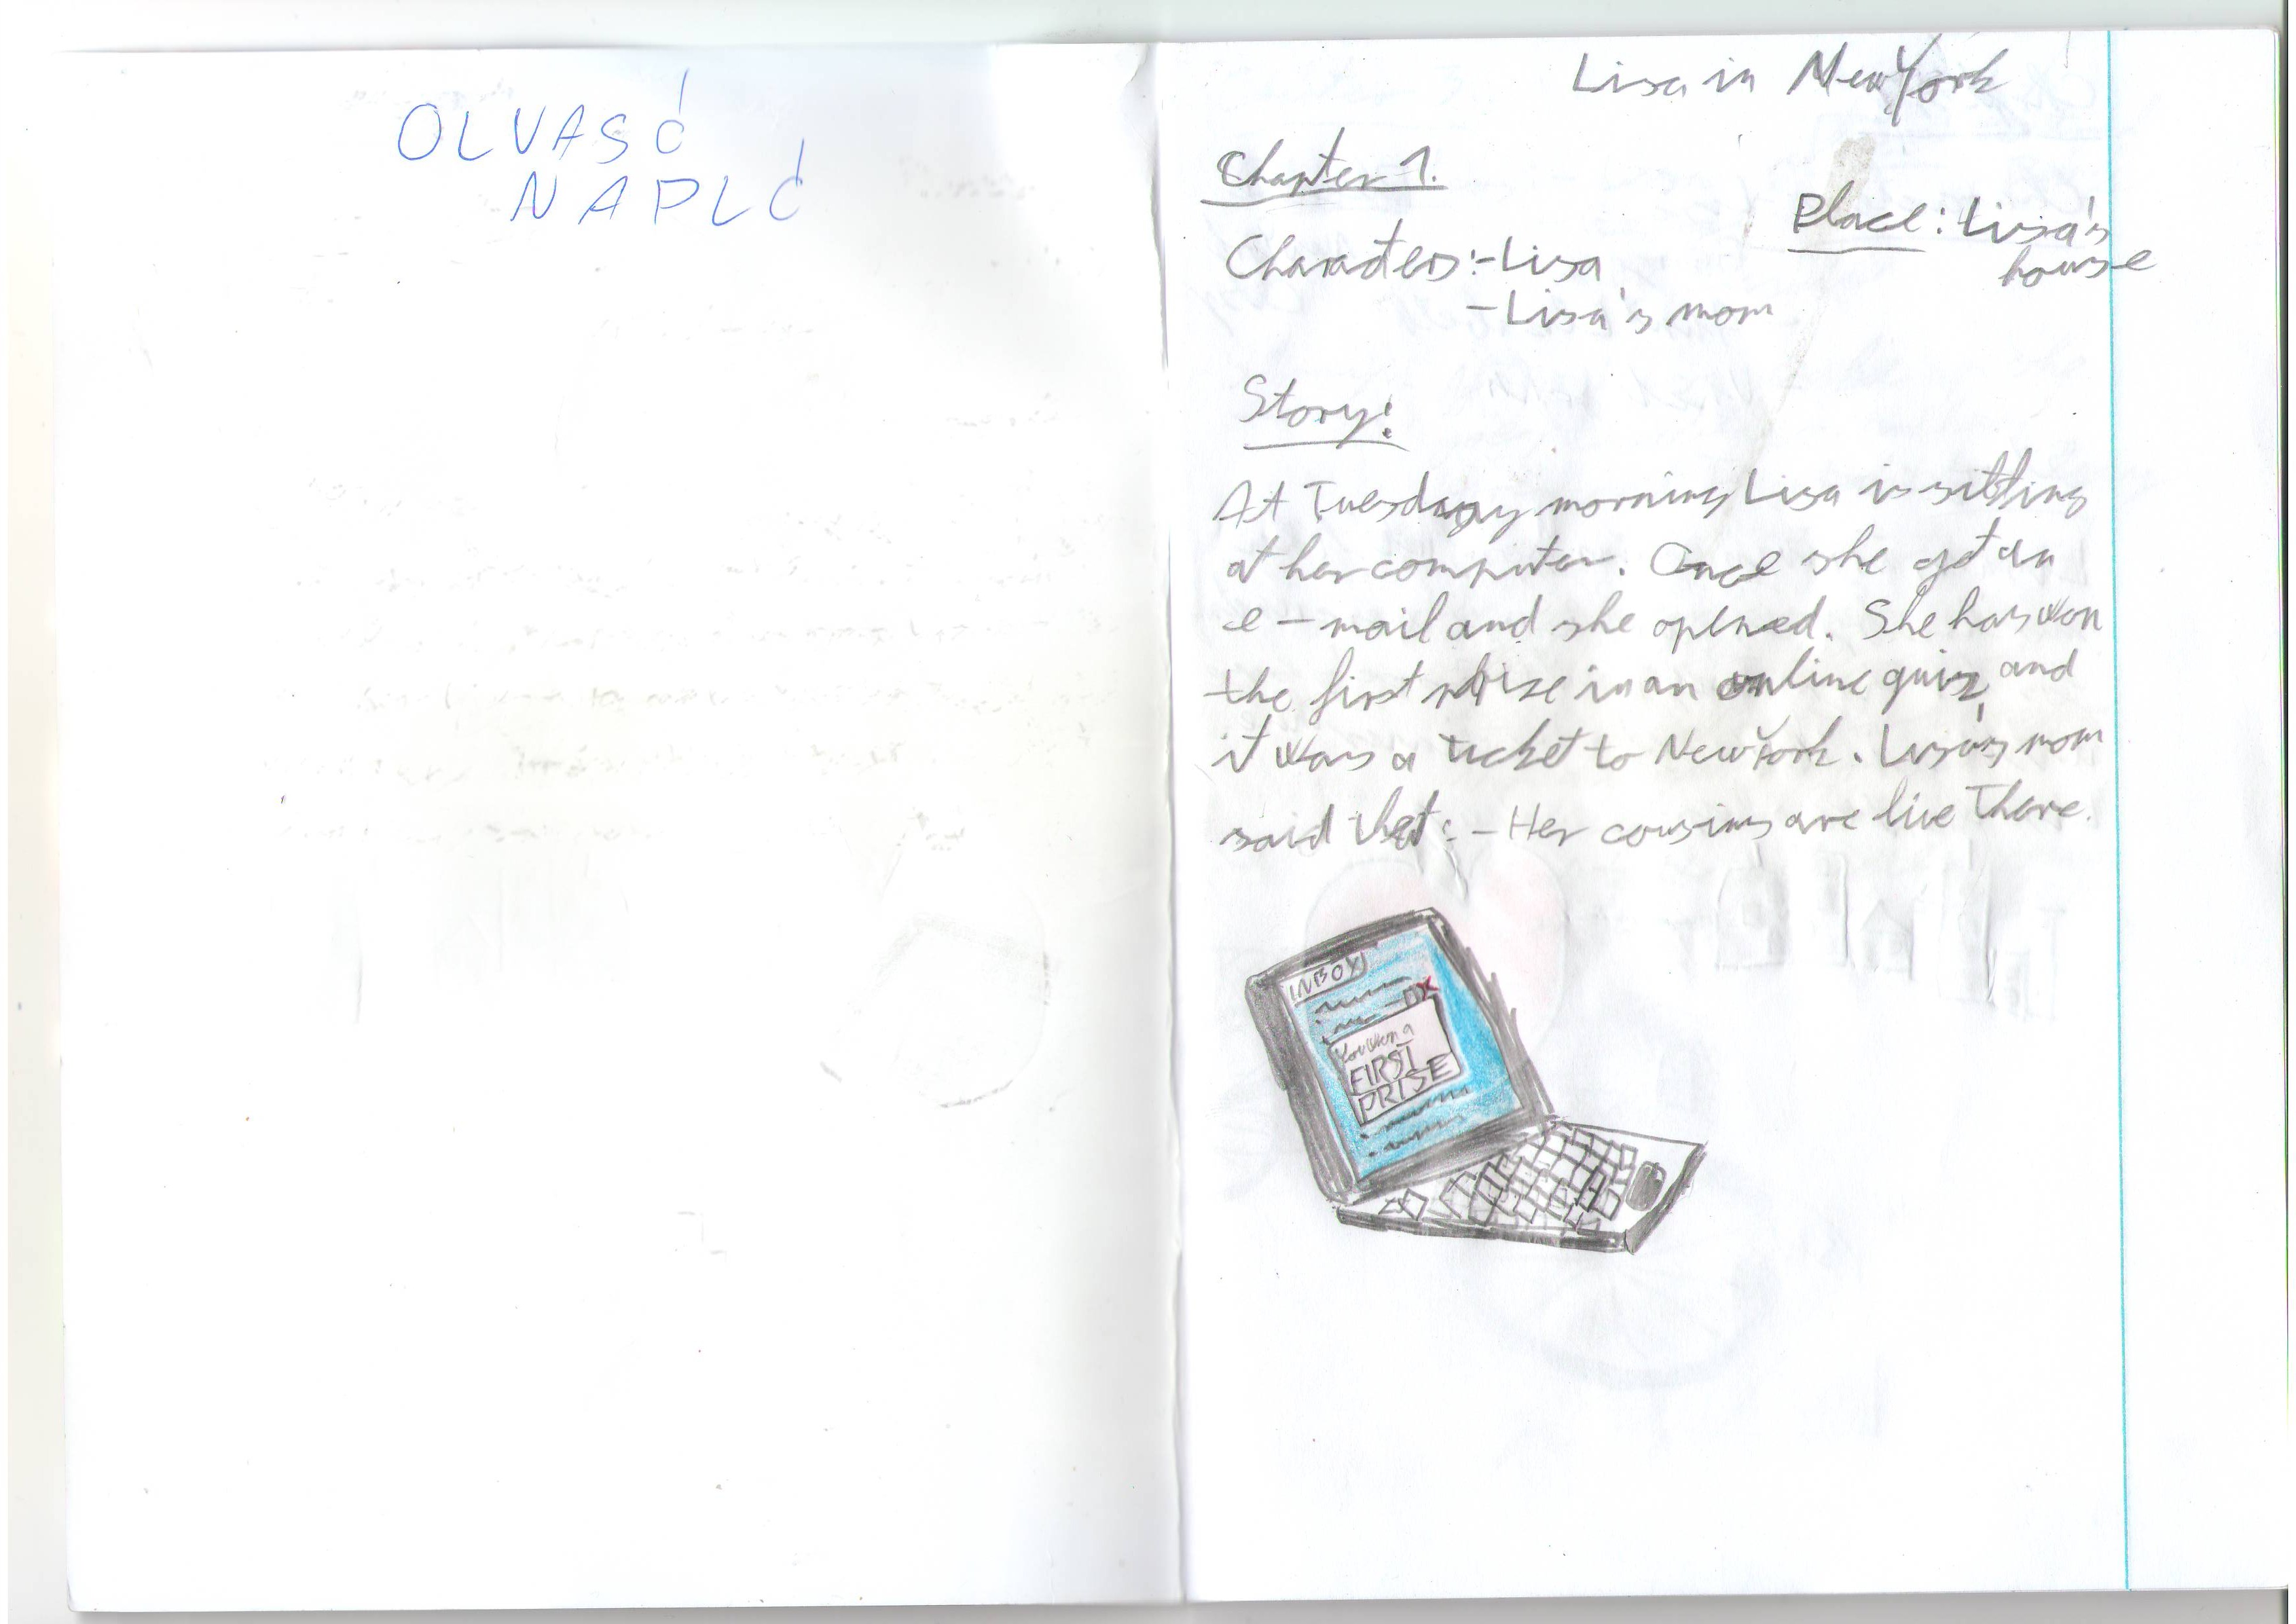 OLVASÓ
NAPLÓ
Lisa in New York
Chapter 1.
Place: Lisa's
house
Characters:-Lisa
-Lisa's mom
Story:
At Tuesday morning Lisa is sitting
at her computer. Once she got an
e-mail and she opened. She has won
the first prize in an online quiz, and
it was a ticket to New York. Lisa's mom
said that: - Her cousins are live there.
INBOX
You won a
FIRST
PRISE